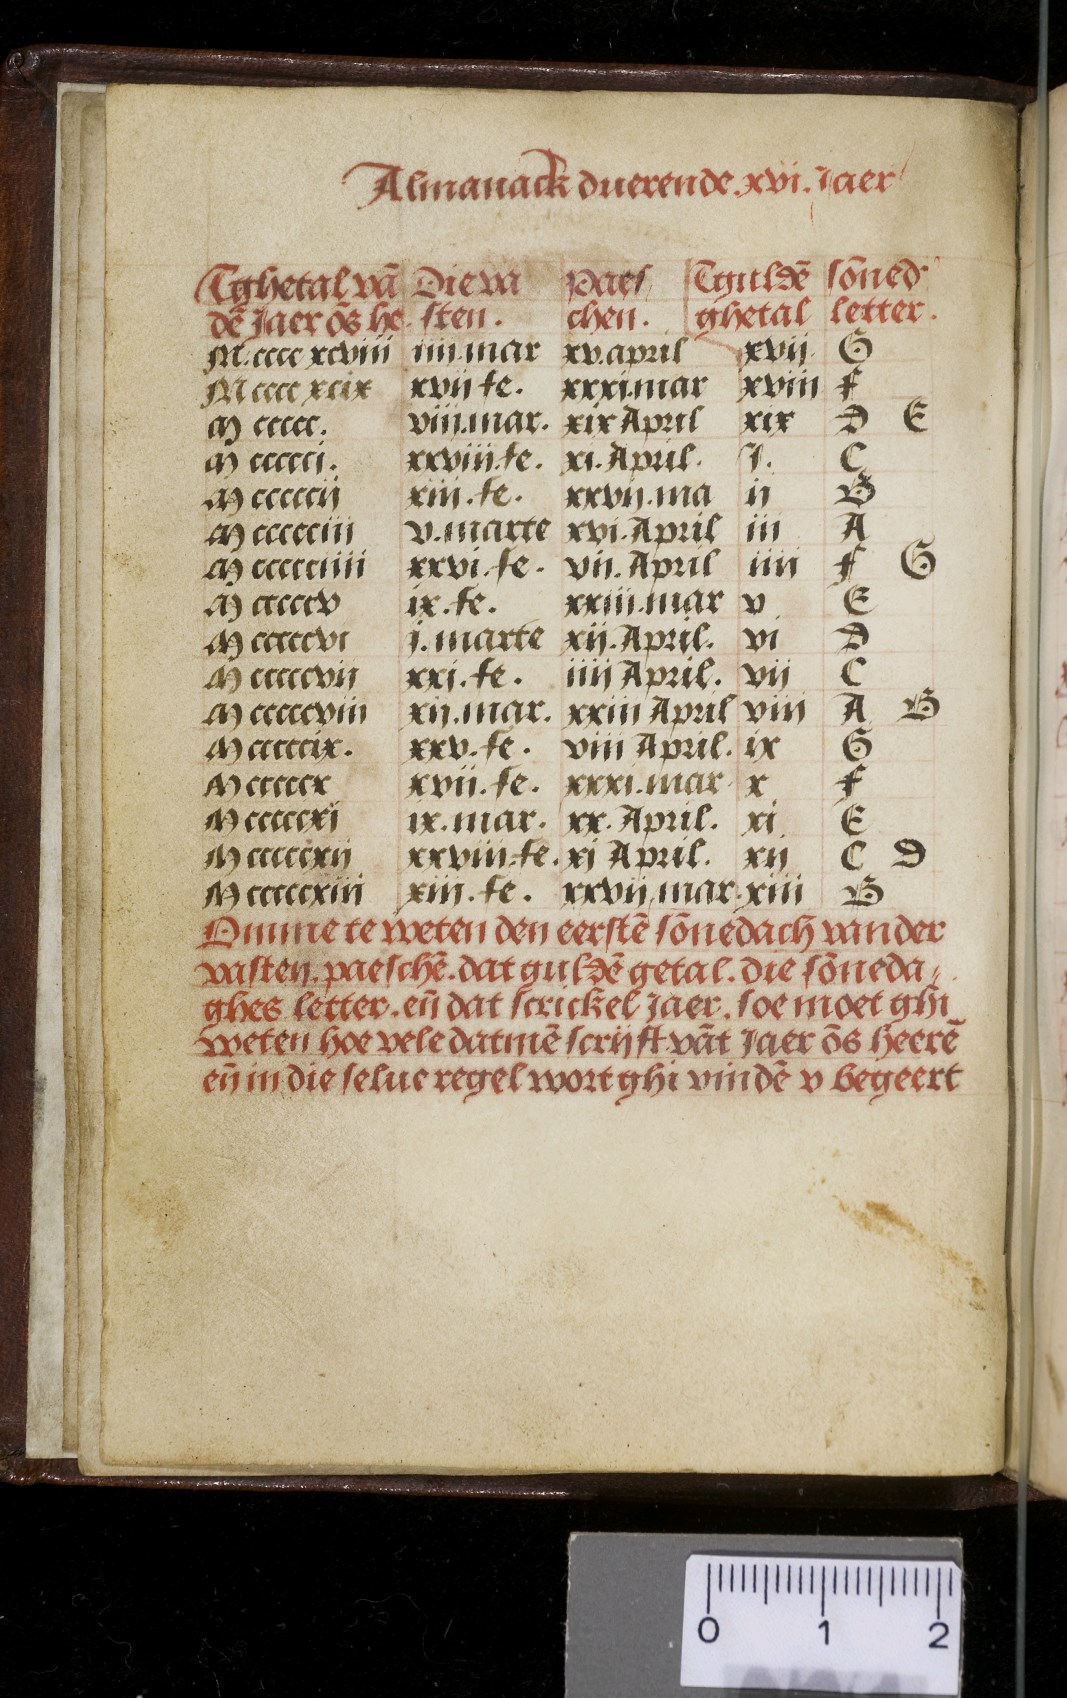 Almanack duerende .xvi. Jaer
Tghetal vā Die va Paes Tguldē sōned
dē Jaer ōs he sten. chen. ghetal letter.
M.cccc xcviii iiii.mar xv.april xvij G
M cccc xcix xvii fe. xxxi.mar xviii F
M ccccc. viii.mar. xix April xix D E
M ccccci. xxviii.fe. xi. April. J. C
M cccccij xiii.fe. xxvij.ma ij B
M ccccciii v.marte xvi.April iii A
M ccccciiii xxvi.fe. vii. April iiii F G
M cccccv ix.fe. xxiii.mar v E
M cccccvi j.marte xij.April. vi D
M cccccvij xxj.fe. iiij April. vij C
M cccccviii xij.mar. xxiii April viij A B
M cccccix. xxv.fe. viii April. ix G
M cccccx xvii.fe. xxxi.mar x F
M cccccxi ix.mar. xx. April. xi E
M cccccxij xxviii.fe. xj April. xij C D
M cccccxiii xiij.fe. xxvij.mar. xiii B
Omme te weten den eerstē sōnedach vander
vasten. paeschē. dat guldē getal. die sōneda⸗
ghes letter. en̄ dat scrickel Jaer. soe moet ghi
weten hoe vele datmē scrijft vāt Jaer ōs heerē
en̄ in die selue regel wort ghi vindē v begeert
0 1 2